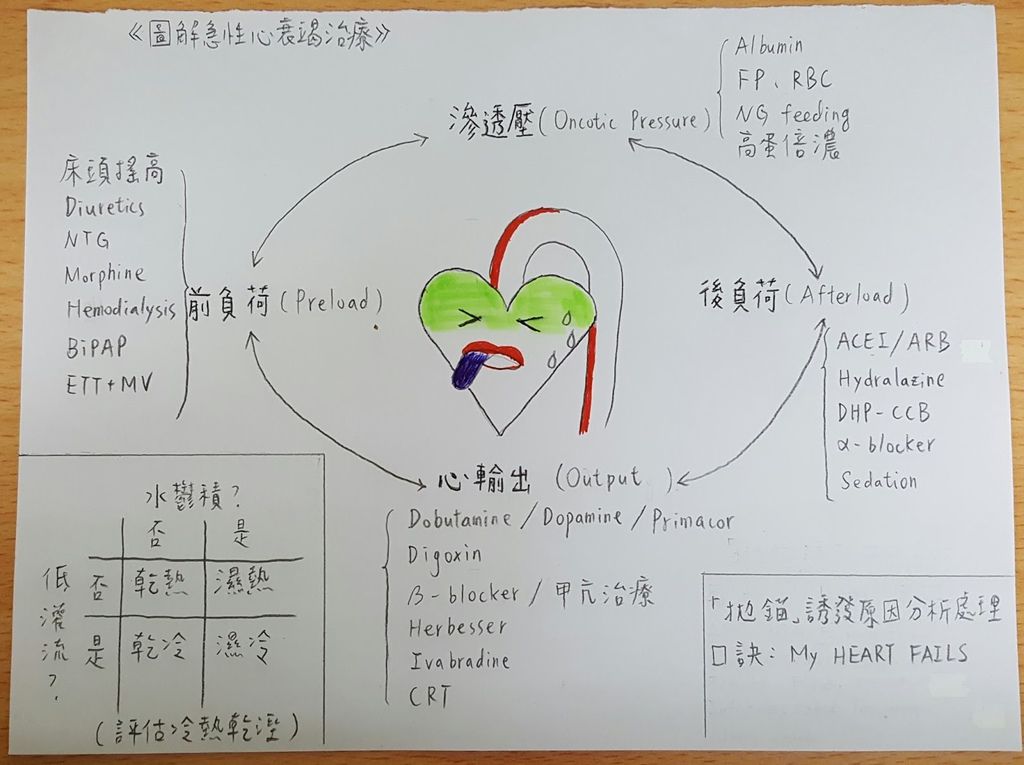 《圖解急性心衰竭治療》
滲透壓(Oncotic Pressure)
Albumin
FP、RBC
NG feeding
高蛋倍濃
床頭搖高
Diuretics
NTG
Morphine
Hemodialysis
BiPAP
ETT+MV
前負荷(Preload)
後負荷(Afterload)
ACEI/ARB
Hydralazine
DHP-CCB
α-blocker
Sedation
心輸出 (Output )
Dobutamine/Dopamine/Primacor
Digoxin
β-blocker/甲亢治療
Herbesser
Ivabradine
CRT
水鬱積?
否 是
低灌流?
否 乾熱 濕熱
是 乾冷 濕冷
(評估冷熱乾溼)
「拋錨」誘發原因分析處理
口訣: My HEART FAILS